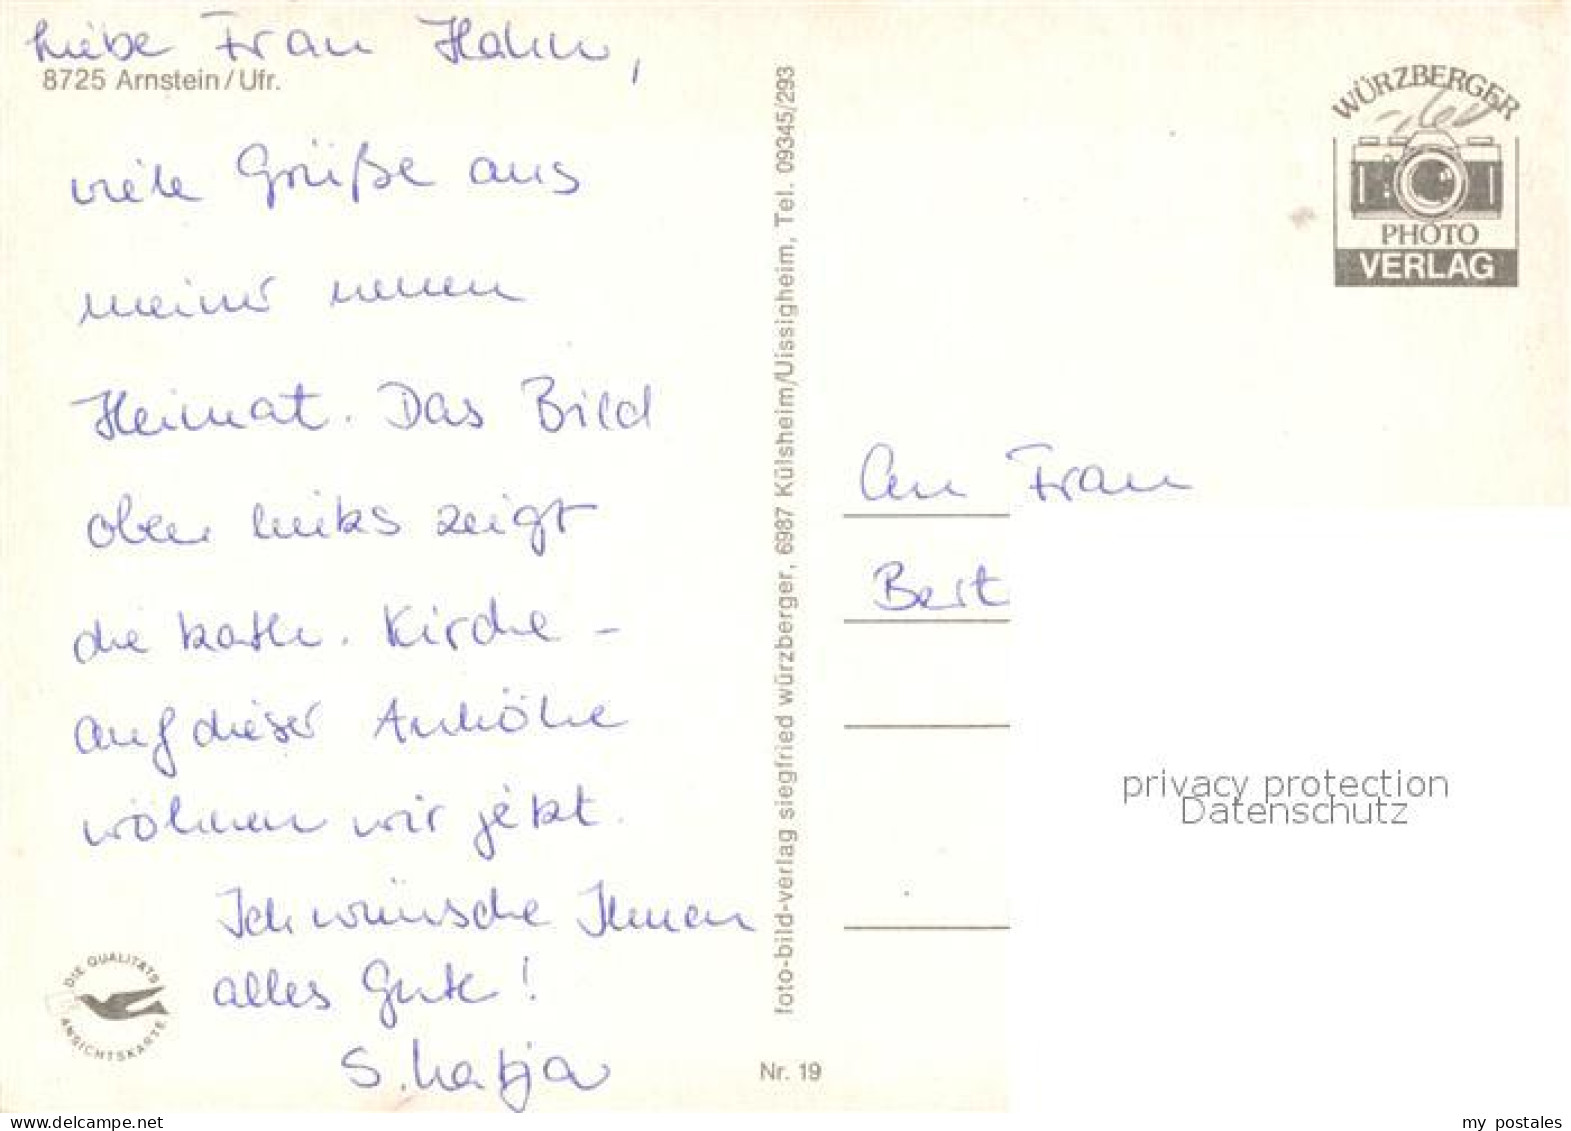 Liebe Frau Hahn,
8725 Arnstein/Ufr.
viele Grüße aus
meiner neuen
Heimat. Das Bild
oben links zeigt
die kath. Kirche -
auf dieser Anhöhe
wohnen wir jetzt.
Ich wünsche Ihnen
alles Gute!
DIE QUALITÄTS
ANSICHTSKARTE
Nr. 19
foto-bild-verlag siegfried würzberger, 6987 Külsheim/Uissigheim, Tel. 09345/293
WÜRZBERGER
PHOTO
VERLAG
An Frau
Bert
privacy protection
Datenschutz
www.delcampe.net
my_postales